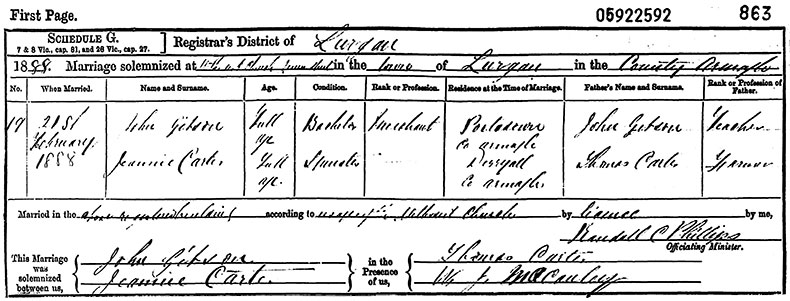 First Page. 05922592 863
SCHEDULE G.
7 & 8 Vic., cap. 81, and 26 Vic., cap. 27.
Registrar's District of Lurgan
1888. Marriage solemnized at in the town of Lurgan in the County Armagh
No. When Married. Name and Surname. Age. Condition. Rank or Profession. Residence at the Time of Marriage. Father's Name and Surname. Rank or Profession of Father.
17 21st February 1888 John Gibson Full age Bachelor Merchant Portadown Co Armagh John Gibson Teacher
Jeannie Carter Full age Spinster Derryall Co Armagh Thomas Carter Farmer
Married in the according to Methodist Church by licence by me,
Randall C Phillips
Officiating Minister.
This Marriage was solemnized between us,
John Gibson
Jeannie Carter
in the Presence of us,
Thomas Carter
Wm J McCauley